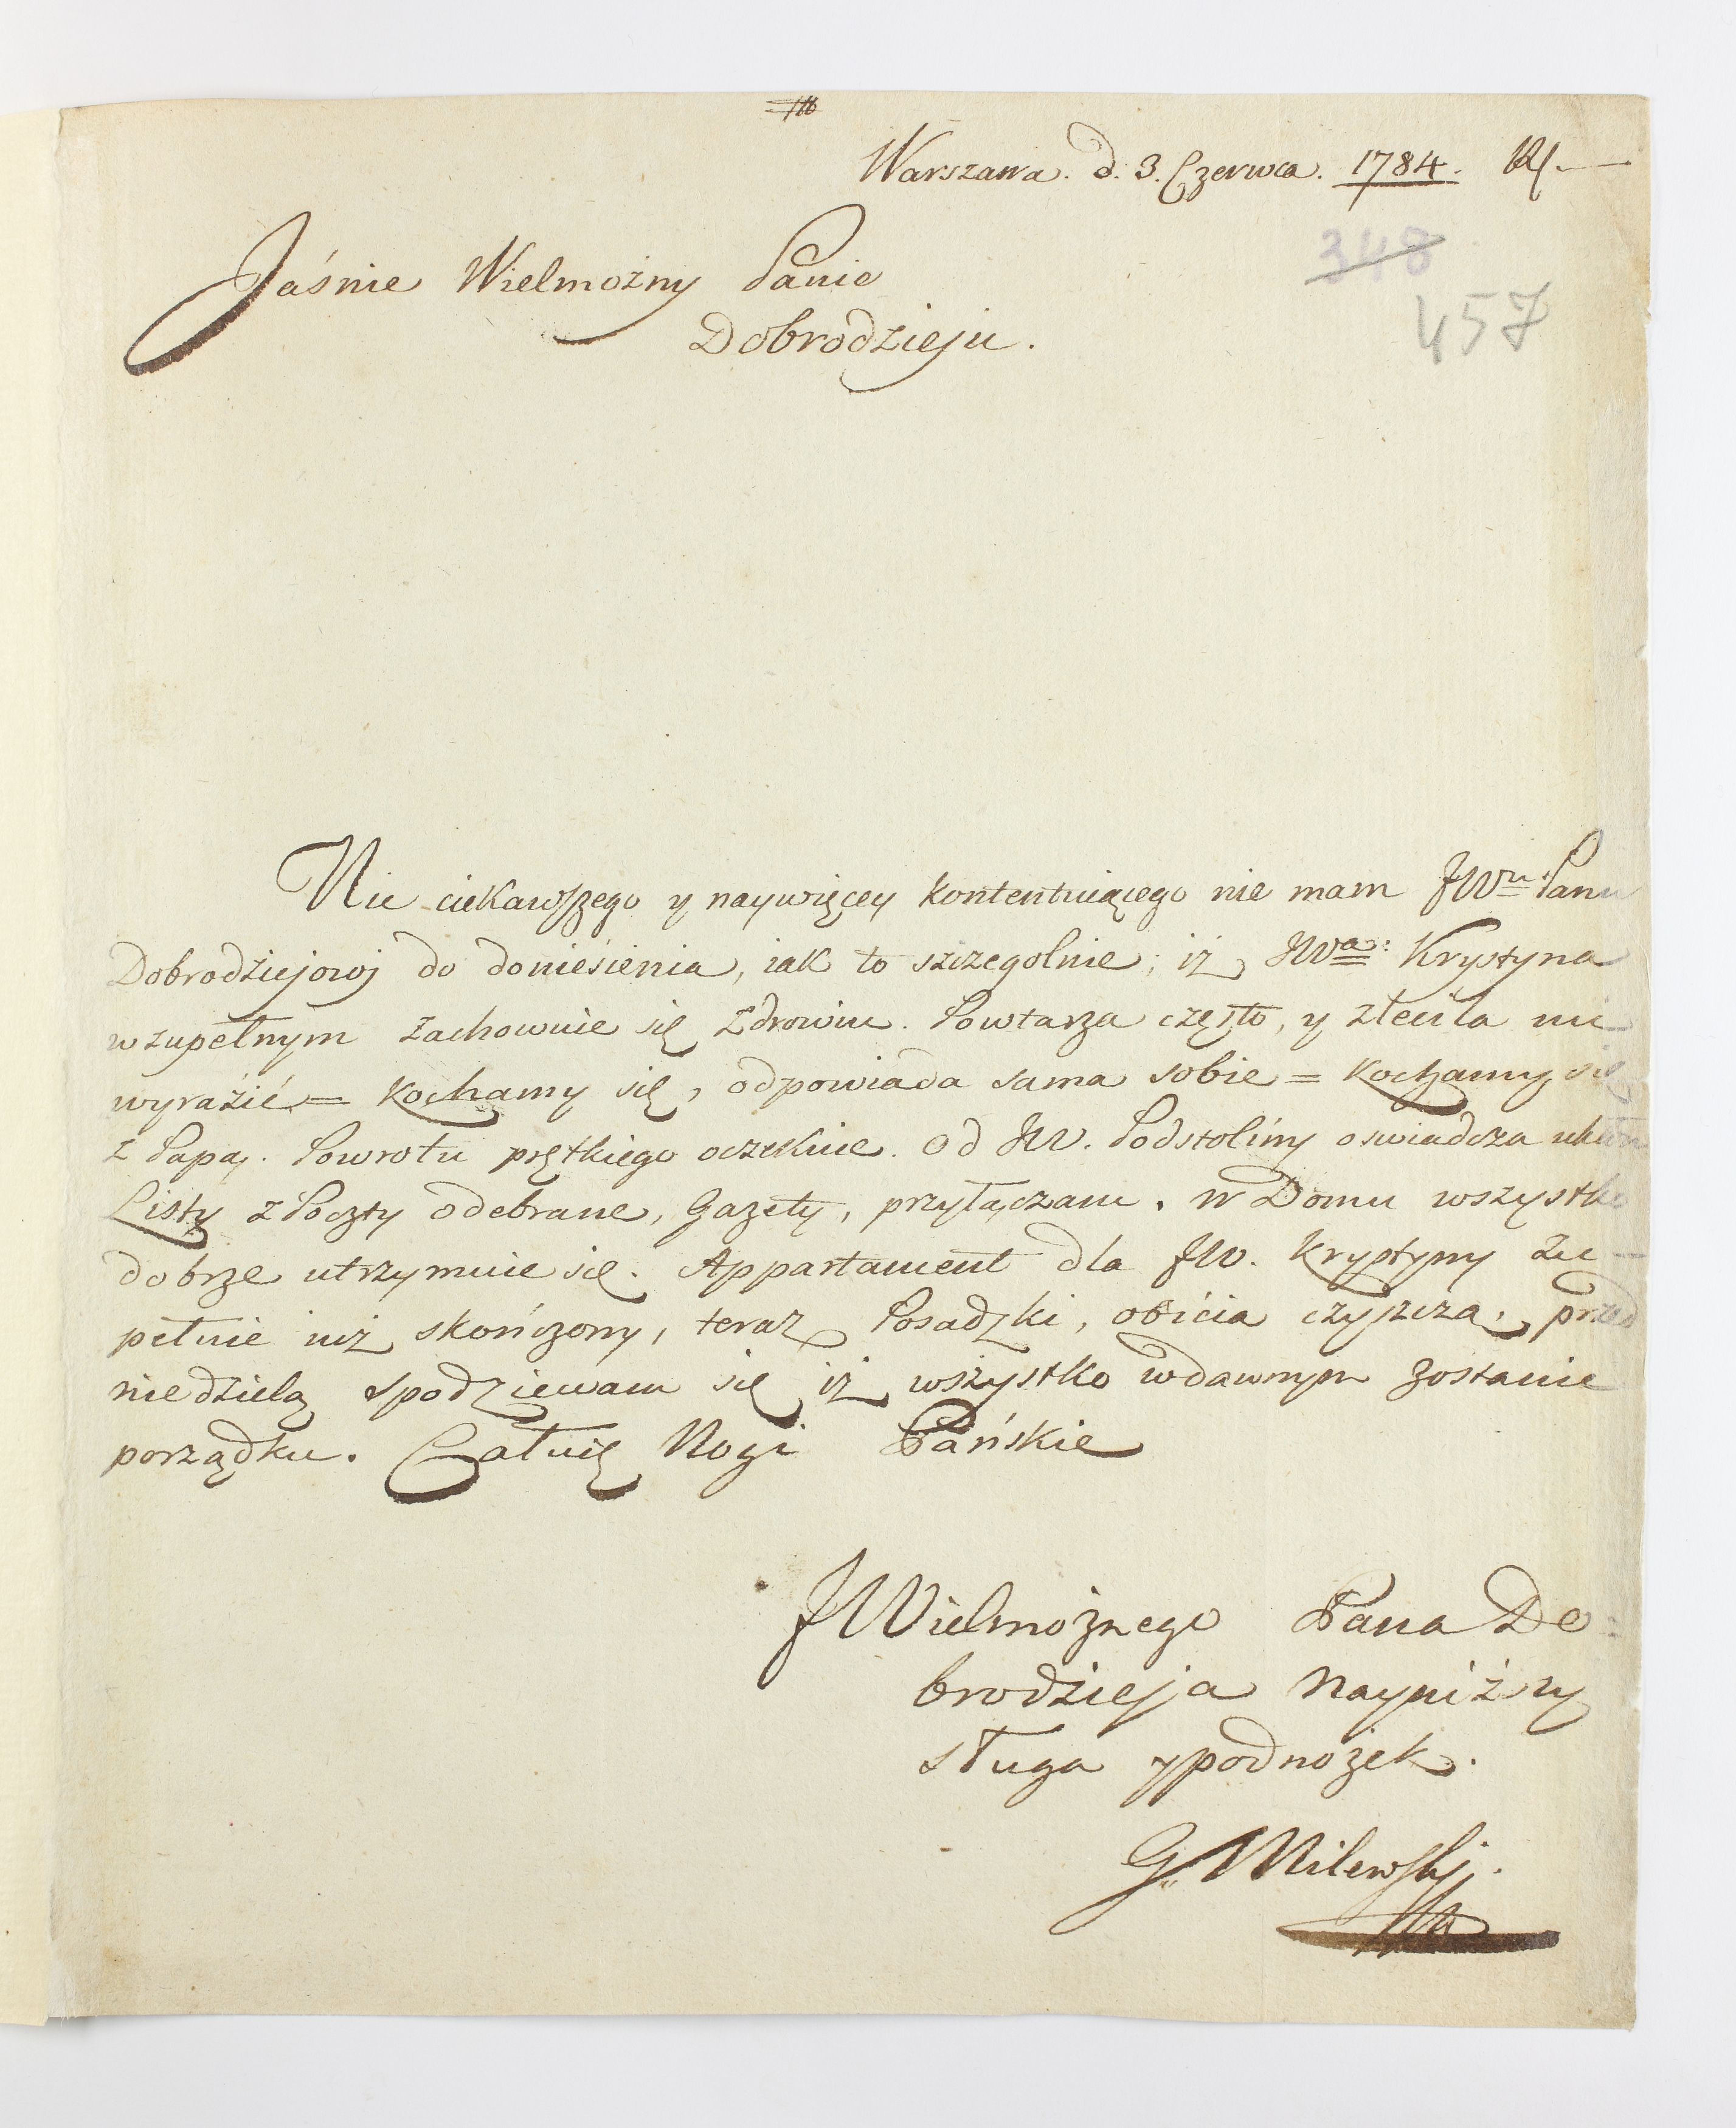 Warszawa. d. 3. Czerwca. 1784. R.
348
457
Jaśnie Wielmożny Panie
Dobrodzieju.
Nic ciekawszego y naywięcey kontentuiącego nie mam JWmu Panu
Dobrodziejowi do doniesienia, iak to szczegolnie, iż JWa: Krystyna
w zupełnym zachowuie się zdrowiu. Powtarza często, y zleciła mi
wyrazić = kochamy się, odpowiada sama sobie = kochamy się
z Papą. Powrotu prętkiego oczekuie. Od JW. Podstoliny oswiadcza ukłon
Listy z Poczty odebrane, Gazety, przyłączam. W Domu wszystko
dobrze utrzymuie się. Appartament dla JW. Krystyny zu-
pełnie iuż skończony, teraz Posadzki, obicia czyszczą, przed
niedzielą spodziewam się iż wszystko w dawnym zostanie
porządku. Całuię Nogi Pańskie
JWielmożnego Pana Do-
brodzieja Nayniższy
sługa y podnożek.
G. Milewski.